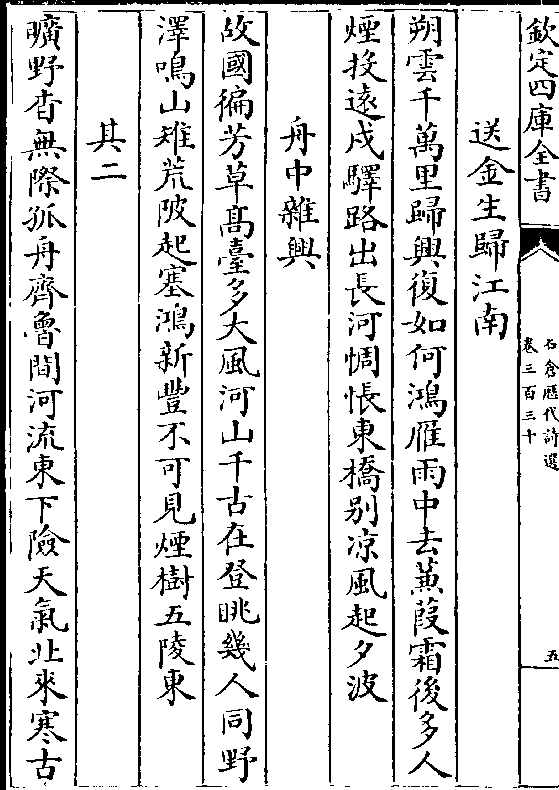 欽定四庫全書
石倉歷代詩選
卷三百三十
五
送金生歸江南
朔雲千萬里歸興復如何鴻雁雨中去蒹葭霜後多人
煙投遠戍驛路出長河惆悵東橋别凉風起夕波
舟中雜興
故國徧芳草髙臺多大風河山千古在登眺幾人同野
澤鳴山雉荒陂起塞鴻新豐不可見煙樹五陵東
其二
曠野杳無際孤舟齊魯間河流東下險天氣北來寒古